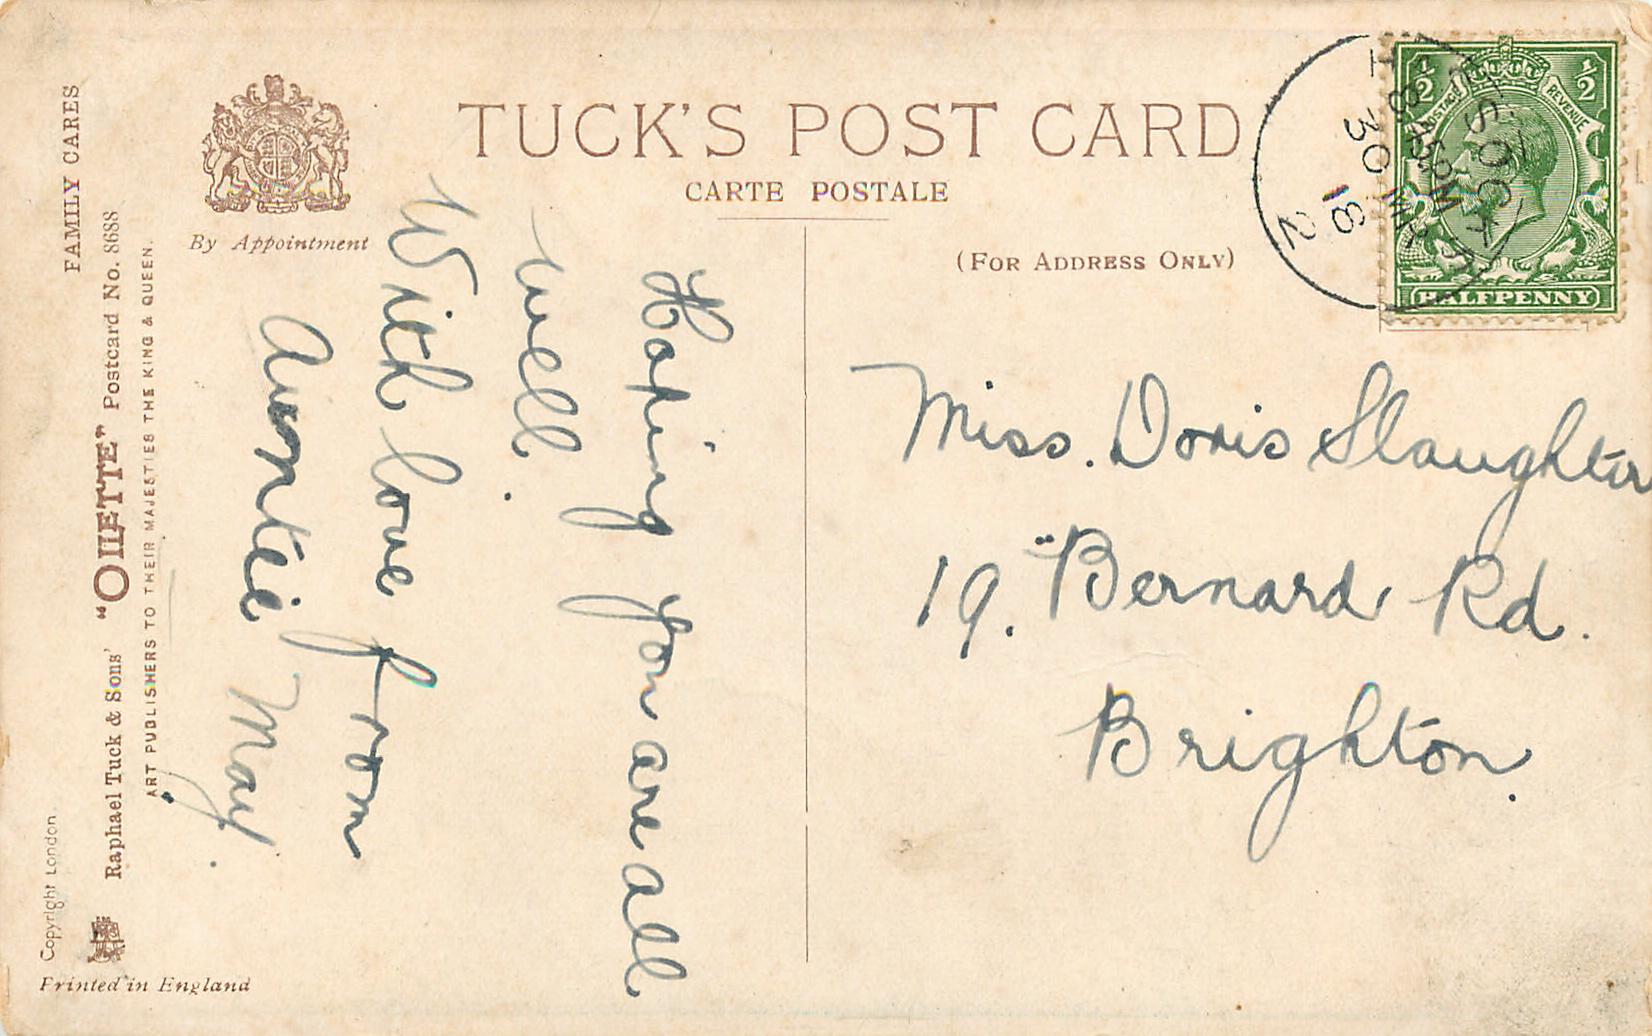 TUCK'S POST CARD
CARTE POSTALE
By Appointment
(FOR ADDRESS ONLY)
FAMILY CARES
Raphael Tuck & Sons' "OILETTE" Postcard No. 8688
ART PUBLISHERS TO THEIR MAJESTIES THE KING & QUEEN.
Copyright London.
Printed in England
Hoping you are all
well.
With love from
Auntie May.
Miss. Doris Slaughter
19. Bernard Rd.
Brighton.
POSTAGE REVENUE
½ ½
HALFPENNY
30 M
18
2